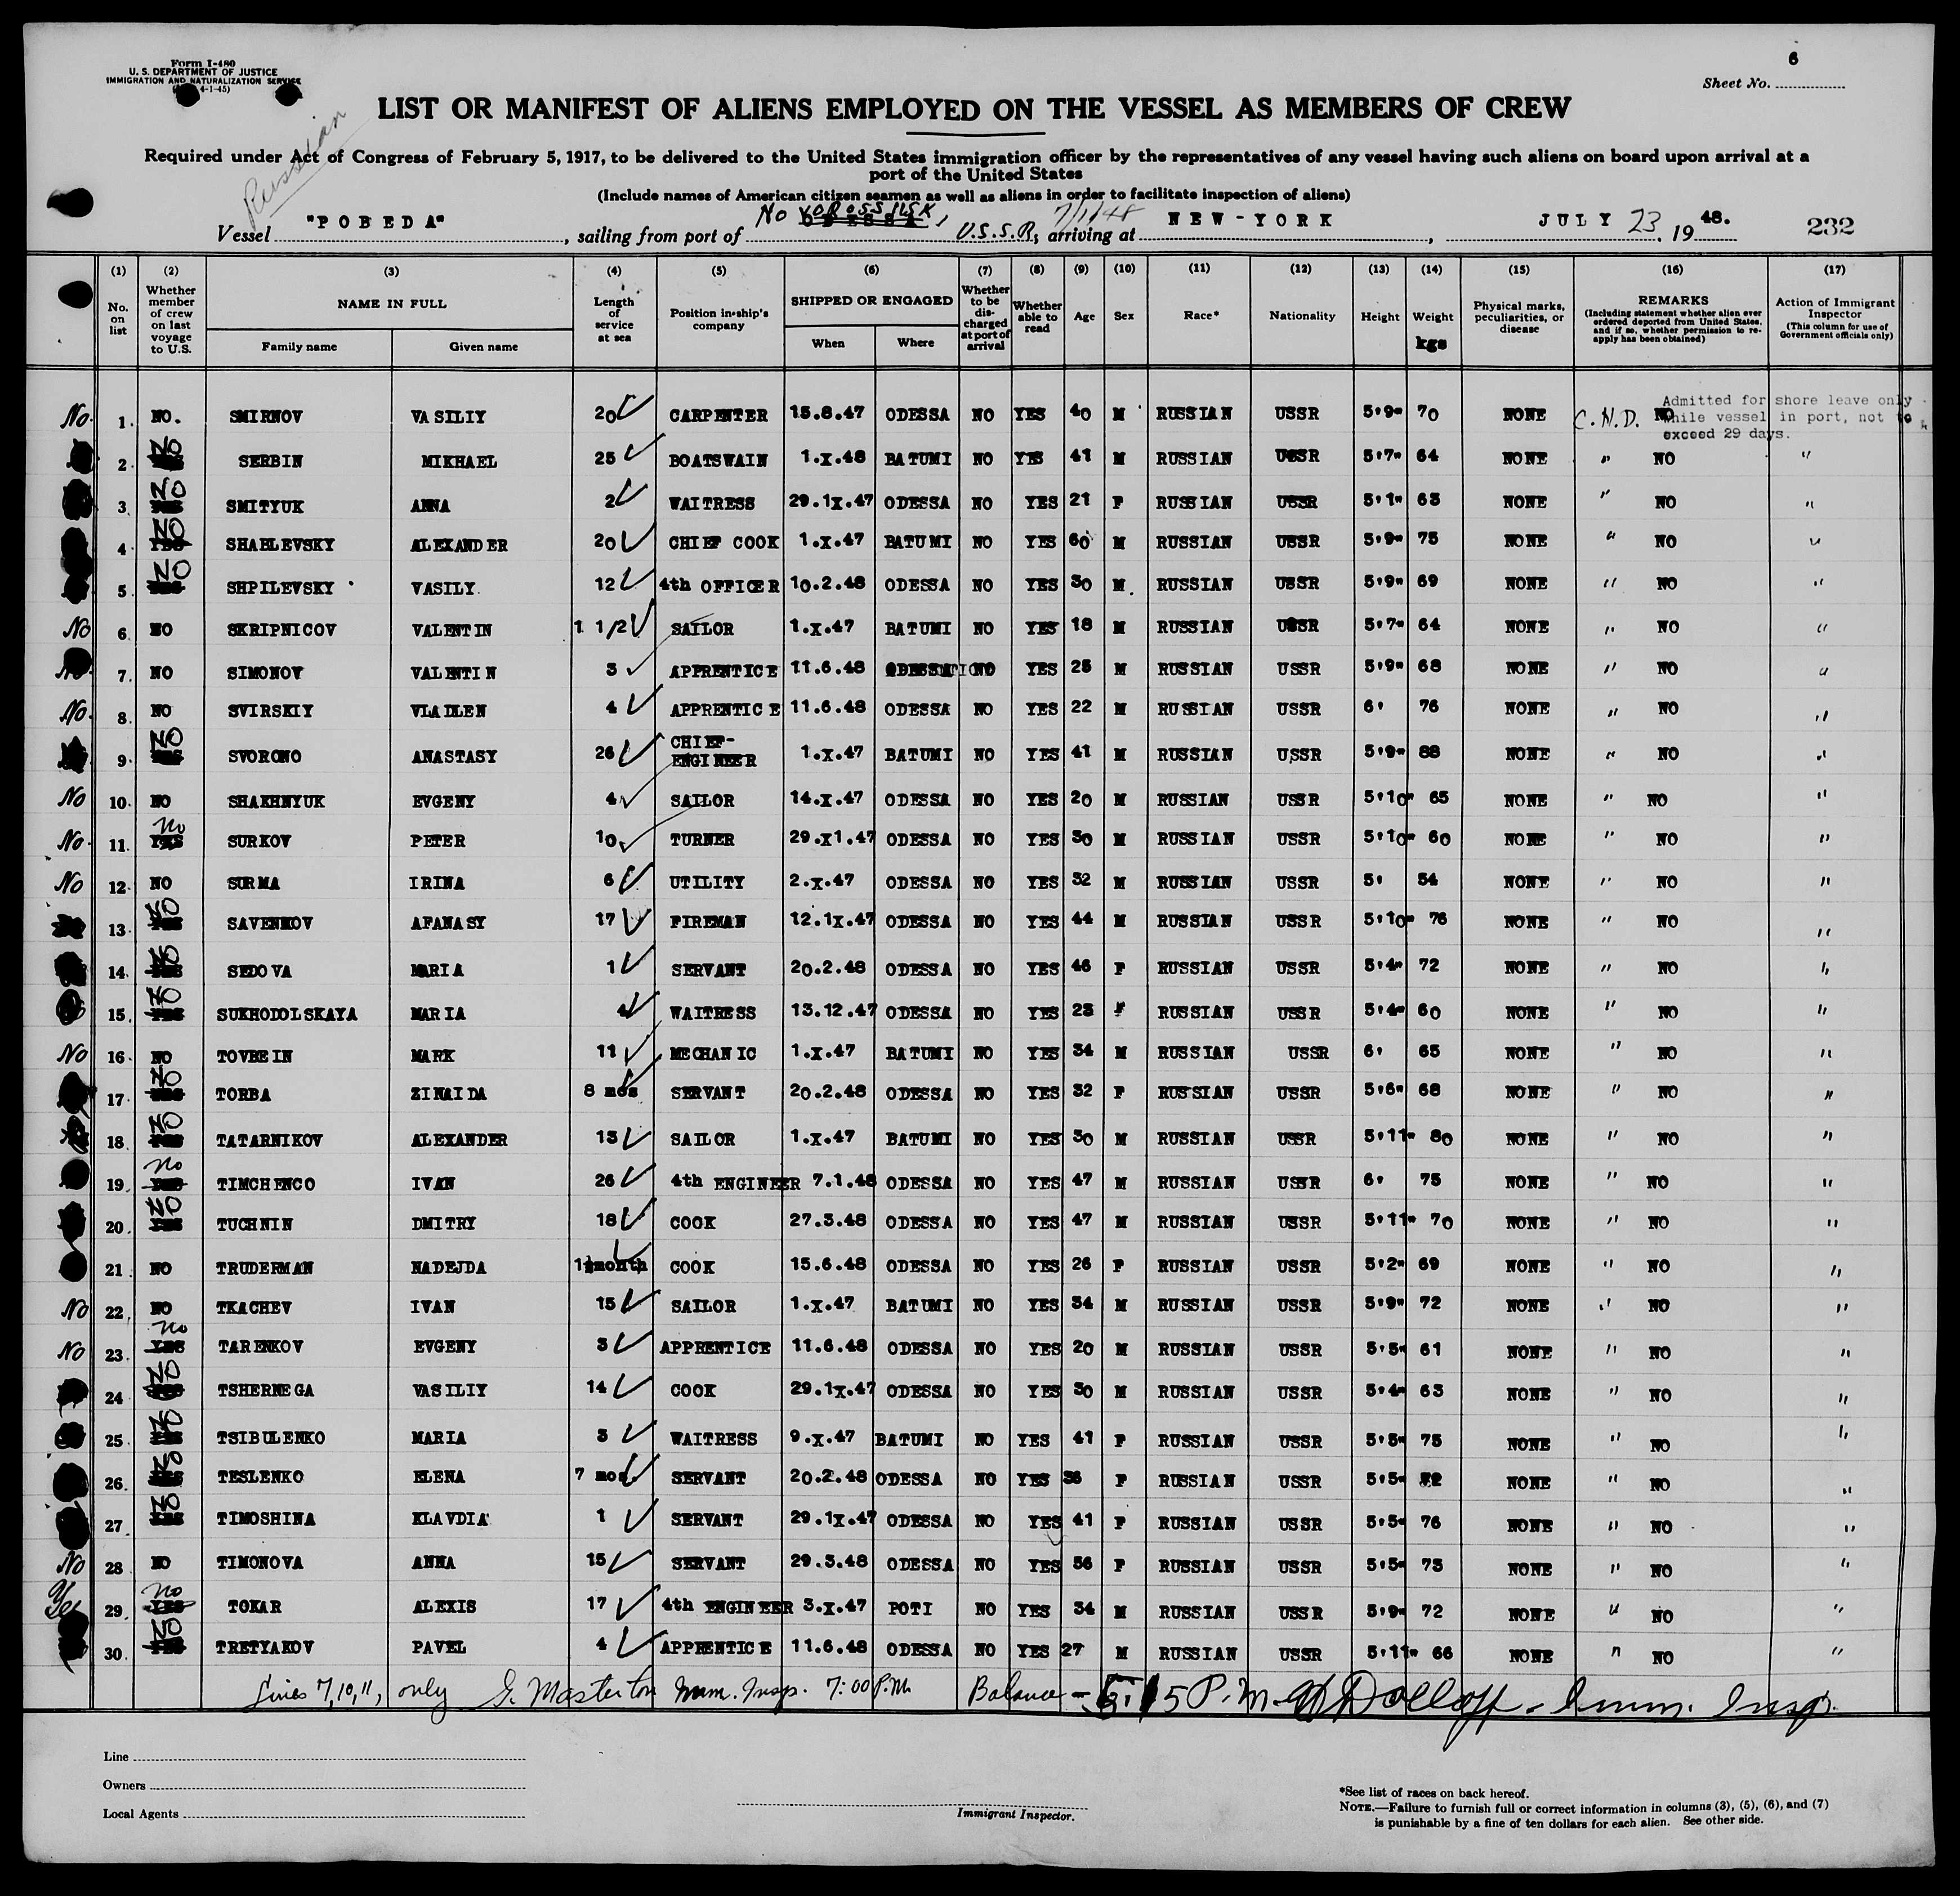 Form I-480
U. S. DEPARTMENT OF JUSTICE
IMMIGRATION AND NATURALIZATION SERVICE
4-1-45)
6
Sheet No.
Russian
LIST OR MANIFEST OF ALIENS EMPLOYED ON THE VESSEL AS MEMBERS OF CREW
Required under Act of Congress of February 5, 1917, to be delivered to the United States immigration officer by the representatives of any vessel having such aliens on board upon arrival at a
port of the United States
(Include names of American citizen seamen as well as aliens in order to facilitate inspection of aliens)
Vessel "POBEDA", sailing from port of NOVOROSSIISK, U.S.S.R, 7/1/48 arriving at NEW-YORK, JULY 23, 1948. 232
(1) (2) (3) (4) (5) (6) (7) (8) (9) (10) (11) (12) (13) (14) (15) (16) (17)
No. on list
Whether member of crew on last voyage to U.S.
NAME IN FULL
Family name
Given name
Length of service at sea
Position in ship's company
SHIPPED OR ENGAGED
When
Where
Whether to be discharged at port of arrival
Whether able to read
Age
Sex
Race*
Nationality
Height
Weight kgs
Physical marks, peculiarities, or disease
REMARKS
(Including statement whether alien ever ordered deported from United States, and if so, whether permission to reapply has been obtained)
Action of Immigrant Inspector
(This column for use of Government officials only)
Admitted for shore leave only
while vessel in port, not to
exceed 29 days.
No 1. NO. SMIRNOV VASILIY 20 CARPENTER 15.8.47 ODESSA NO YES 40 M RUSSIAN USSR 5'9" 70 NONE C.H.D. NO
2 NO SERBIN MIKHAEL 25 BOATSWAIN 1.X.48 BATUMI NO YES 41 M RUSSIAN USSR 5'7" 64 NONE " NO "
3 NO SMITYUK ANNA 2 WAITRESS 29.1X.47 ODESSA NO YES 21 F RUSSIAN USSR 5'1" 63 NONE " NO "
4 NO SHABLEVSKY ALEXANDER 20 CHIEF COOK 1.X.47 BATUMI NO YES 60 M RUSSIAN USSR 5'9" 75 NONE " NO "
5 NO SHPILEVSKY VASILY 12 4th OFFICER 10.2.48 ODESSA NO YES 30 M. RUSSIAN USSR 5'9" 69 NONE " NO "
No 6 NO SKRIPNICOV VALENTIN 1 1/2 SAILOR 1.X.47 BATUMI NO YES 18 M RUSSIAN USSR 5'7" 64 NONE " NO "
No 7 NO SIMONOV VALENTIN 3 APPRENTICE 11.6.48 ODESSA NO YES 25 M RUSSIAN USSR 5'9" 68 NONE " NO "
No 8 NO SVIRSKIY VLADLEN 4 APPRENTICE 11.6.48 ODESSA NO YES 22 M RUSSIAN USSR 6' 76 NONE " NO "
9 NO SVORONO ANASTASY 26 CHIEF-ENGINEER 1.X.47 BATUMI NO YES 41 M RUSSIAN USSR 5'9" 88 NONE " NO "
No 10 NO SHAKHNYUK EVGENY 4 SAILOR 14.X.47 ODESSA NO YES 20 M RUSSIAN USSR 5'10" 65 NONE " NO "
No 11 YES no SURKOV PETER 10 TURNER 29.X1.47 ODESSA NO YES 30 M RUSSIAN USSR 5'10" 60 NONE " NO "
No 12 NO SURMA IRINA 6 UTILITY 2.X.47 ODESSA NO YES 32 M RUSSIAN USSR 5' 54 NONE " NO "
13 NO SAVENKOV AFANASY 17 FIREMAN 12.1X.47 ODESSA NO YES 44 M RUSSIAN USSR 5'10" 76 NONE " NO "
14 NO SEDOVA MARIA 1 SERVANT 20.2.48 ODESSA NO YES 46 F RUSSIAN USSR 5'4" 72 NONE " NO "
15 NO SUKHODOLSKAYA MARIA 4 WAITRESS 13.12.47 ODESSA NO YES 23 F RUSSIAN USSR 5'4" 60 NONE " NO "
No 16 NO TOVBEIN MARK 11 MECHANIC 1.X.47 BATUMI NO YES 34 M RUSSIAN USSR 6' 65 NONE " NO "
17 NO TORBA ZINAIDA 8 mos SERVANT 20.2.48 ODESSA NO YES 32 F RUSSIAN USSR 5'6" 68 NONE " NO "
18 NO TATARNIKOV ALEXANDER 13 SAILOR 1.X.47 BATUMI NO YES 30 M RUSSIAN USSR 5'11" 80 NONE " NO "
19 no TIMCHENCO IVAN 26 4th ENGINEER 7.1.48 ODESSA NO YES 47 M RUSSIAN USSR 6' 75 NONE " NO "
20 NO TUCHNIN DMITRY 18 COOK 27.3.48 ODESSA NO YES 47 M RUSSIAN USSR 5'11" 70 NONE " NO "
21 NO TRUDERMAN NADEJDA 1½month COOK 15.6.48 ODESSA NO YES 26 F RUSSIAN USSR 5'2" 69 NONE " NO "
No 22 NO TKACHEV IVAN 15 SAILOR 1.X.47 BATUMI NO YES 34 M RUSSIAN USSR 5'9" 72 NONE " NO "
No 23 YES no TARENKOV EVGENY 3 APPRENTICE 11.6.48 ODESSA NO YES 20 M RUSSIAN USSR 5'5" 61 NONE " NO "
24 NO TSHERNEGA VASILIY 14 COOK 29.1X.47 ODESSA NO YES 30 M RUSSIAN USSR 5'4" 63 NONE " NO "
25 NO TSIBULENKO MARIA 3 WAITRESS 9.X.47 BATUMI NO YES 41 F RUSSIAN USSR 5'5" 75 NONE " NO "
26 NO TESLENKO ELENA 7 mos. SERVANT 20.2.48 ODESSA NO YES 36 F RUSSIAN USSR 5'5" NONE " NO "
27 NO TIMOSHINA KLAVDIA 1 SERVANT 29.1X.47 ODESSA NO YES 41 F RUSSIAN USSR 5'5" 76 NONE " NO "
No 28 NO TIMONOVA ANNA 15 SERVANT 29.3.48 ODESSA NO YES 36 F RUSSIAN USSR 5'5" 73 NONE " NO "
Yes 29 YES no TOKAR ALEXIS 17 4th ENGINEER 3.X.47 POTI NO YES 34 M RUSSIAN USSR 5'9" 72 NONE " NO "
30 NO TRETYAKOV PAVEL 4 APPRENTICE 11.6.48 ODESSA NO YES 27 M RUSSIAN USSR 5'11" 66 NONE " NO "
Lines 7,10,11, only G. Masterton Imm. Insp. 7:00 P.M. Balance - 5 P.M. Dolloff - Imm. Insp.
Line
Owners
Local Agents
Immigrant Inspector.
*See list of races on back hereof.
NOTE.—Failure to furnish full or correct information in columns (3), (5), (6), and (7)
is punishable by a fine of ten dollars for each alien. See other side.